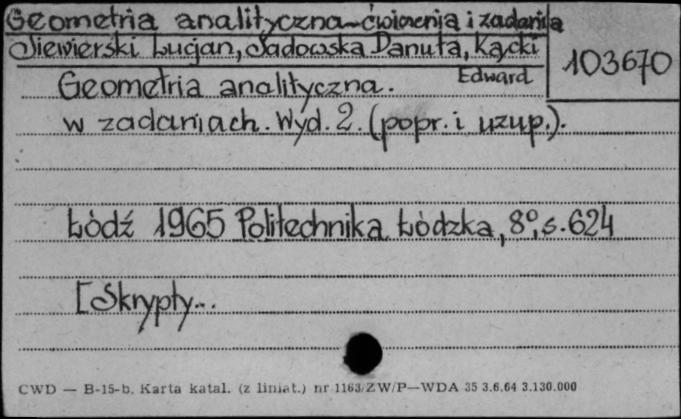 Geometria analityczna-ćwiczenia i zadania
Siewierski Lucjan, Sadowska Danuta, Kącki
Edward
103670
Geometria analityczna.
w zadaniach. Wyd. 2. (popr. i uzup.).
Łódź 1965 Politechnika Łódzka, 8°, s. 624
[Skrypty...
CWD — B-15-b. Karta katal. (z liniat.) nr 1163/ZW/P—WDA 35 3.6.64 3.130.000